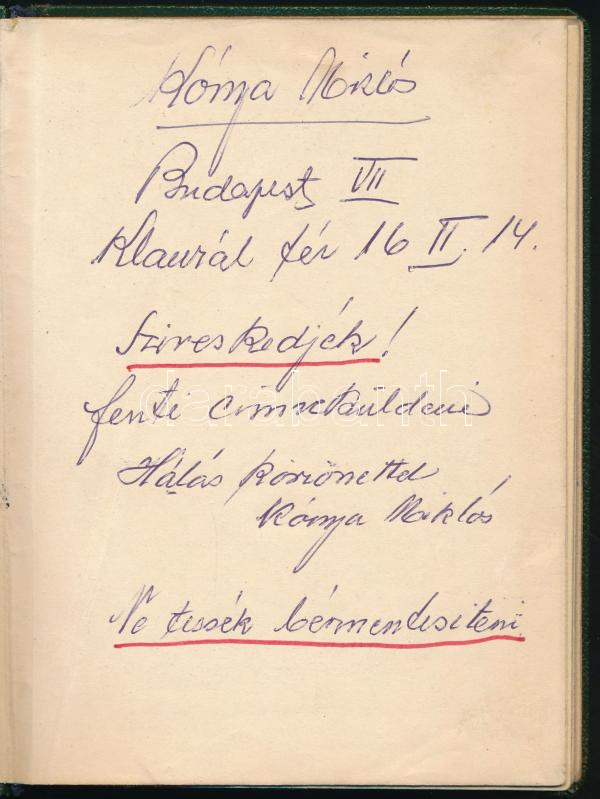 Kónya Miklós
Budapest VII
Klauzál tér 16 II. 14.
Sziveskedjék!
fenti cimre küldeni
Hálás köszönettel
Kónya Miklós
Ne tessék bérmentesiteni
darabanth